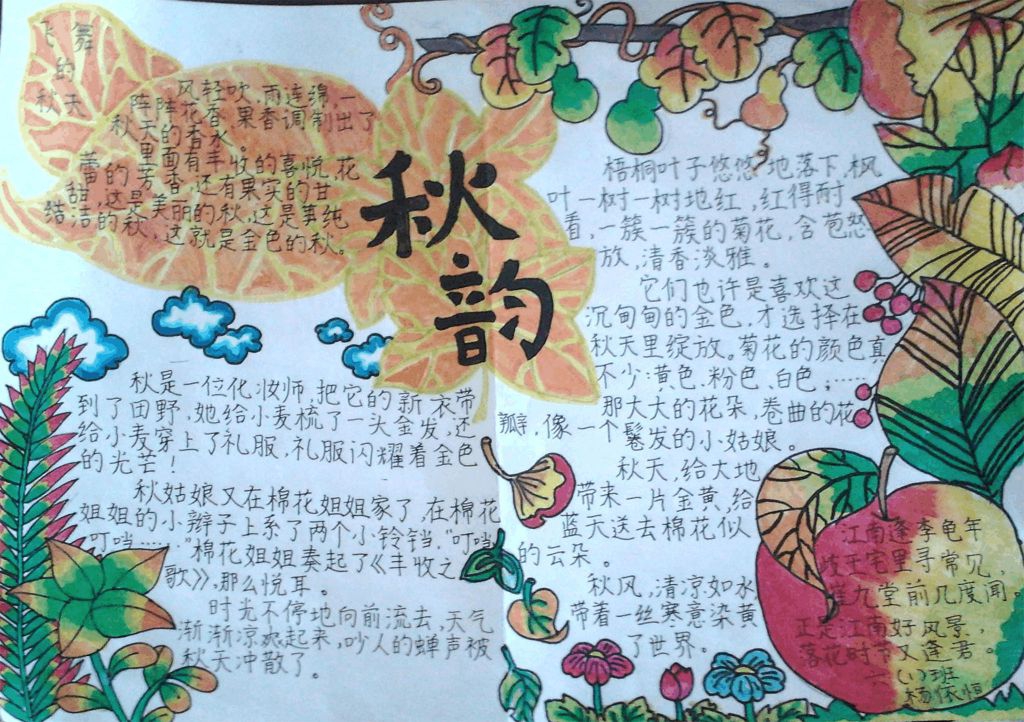 飞舞
的
秋天
风轻吹,雨连绵,一
阵阵花香,果香调制出了
秋天的香水。
里面有丰收的喜悦,花
蕾的芳香,还有果实的甘
甜,这是美丽的秋,这是纯
洁的秋,这就是金色的秋。
秋韵
秋是一位化妆师,把它的新衣带
到了田野,她给小麦梳了一头金发,还
给小麦穿上了礼服,礼服闪耀着金色
的光芒!
秋姑娘又在棉花姐姐家了,在棉花
姐姐的小辫子上系了两个小铃铛,"叮当
叮当……"棉花姐姐奏起了《丰收之
歌》,那么悦耳。
时光不停地向前流去,天气
渐渐凉起来,吵人的蝉声被
秋天冲散了。
梧桐叶子悠悠地落下,枫
叶一树一树地红,红得耐
看,一簇一簇的菊花,含苞怒
放,清香淡雅。
它们也许是喜欢这
沉甸甸的金色,才选择在
秋天里绽放。菊花的颜色真
不少:黄色、粉色、白色;……
那大大的花朵,卷曲的花
瓣,像一个鬈发的小姑娘。
秋天,给大地
带来一片金黄,给
蓝天送去棉花似
的云朵。
秋风,清凉如水
带着一丝寒意染黄
了世界。
江南逢李龟年
岐王宅里寻常见,
崔九堂前几度闻。
正是江南好风景,
落花时节又逢君。
六(1)班
杨依恒